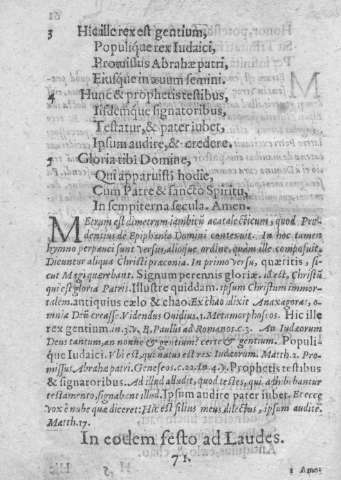 3 Hic ille rex est gentium,
Populique rex Iudaici,
Promissus Abrahæ patri,
Eiusque in æuum semini.
4 Hunc & prophetis testibus,
Iisdemque signatoribus,
Testatur, & pater iubet,
Ipsum audire, & credere.
5 Gloria tibi Domine,
Qui apparuisti hodie,
Cum Patre & sancto Spiritu,
In sempiterna sæcula. Amen.
MEtrum est dimetrum iambicũ acatalecticum, quod Pru-
dentius de Epiphania Domini contexuit. In hoc tamen
hymno perpauci sunt versus, alioque ordine, quàm ille composuit.
Dicuntur aliqua Christi præconia. In primo versu, quæritis, si-
cut Magi quærebant. Signum perennis gloriæ. id est, Christũ
qui est gloria Patris. Illustre quiddam. ipsum Christum immor-
talem. antiquius cælo & chao. Ex chao dixit Anaxagoras, o-
mnia Deũ creasse. Videndus Ouidius. 1. Metamorphoseos. Hic ille
rex gentium. in 3. v. B. Paulus ad Romanos. c. 3. An Iudæorum
Deus tantum, an nonne & gentium? certe & gentium. Populi-
que Iudaici. Vbi est, qui natus est rex Iudæorum. Matth. 2. Pro-
missus Abrahæ patri. Geneseos. c. 22. in. 4. v. Prophetis testibus
& signatoribus. Ad illud allusit, quod testes, qui adhibebantur
testamento, signabant illud. Ipsum audire pater iubet. Et ecce
vox è nube quæ diceret: Hic est filius meus dilectus, ipsum audite.
Matth. 17.
In eodem festo ad Laudes.
71.
1 Amor